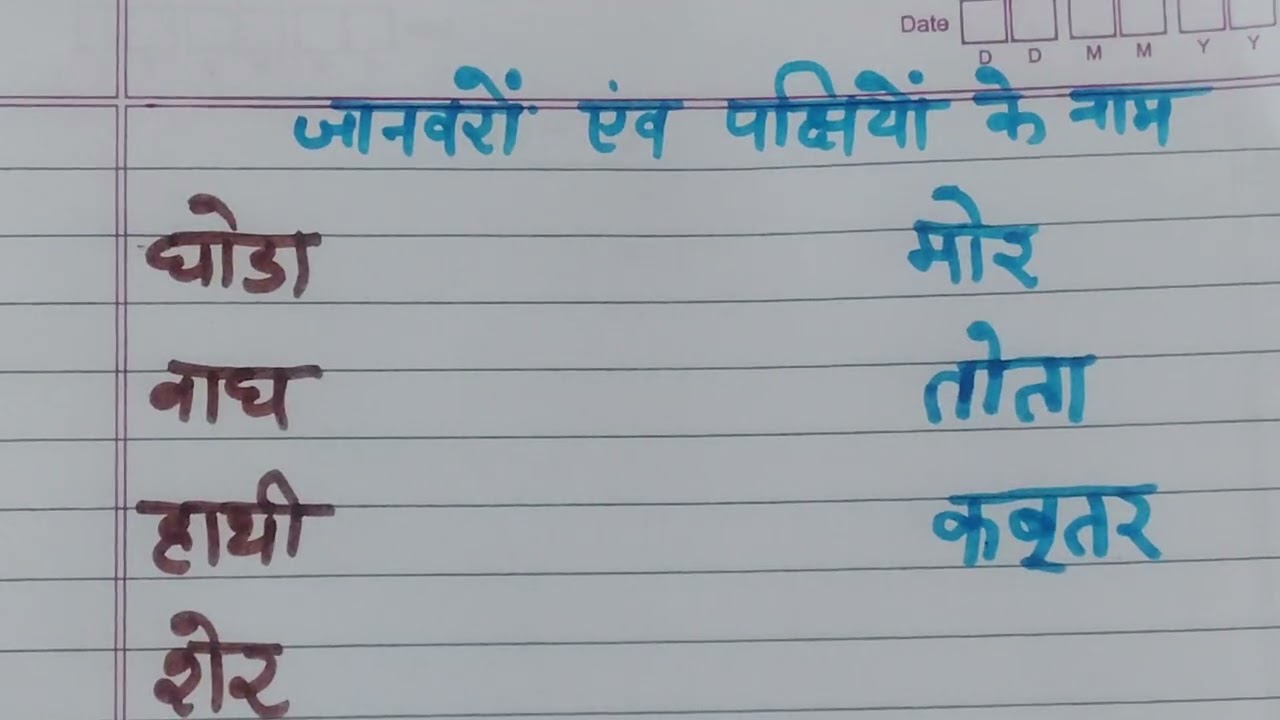 Date
D D M M Y Y
जानवरों एंव पक्षियों के नाम
घोडा मोर
बाघ तोता
हाथी कबूतर
शेर